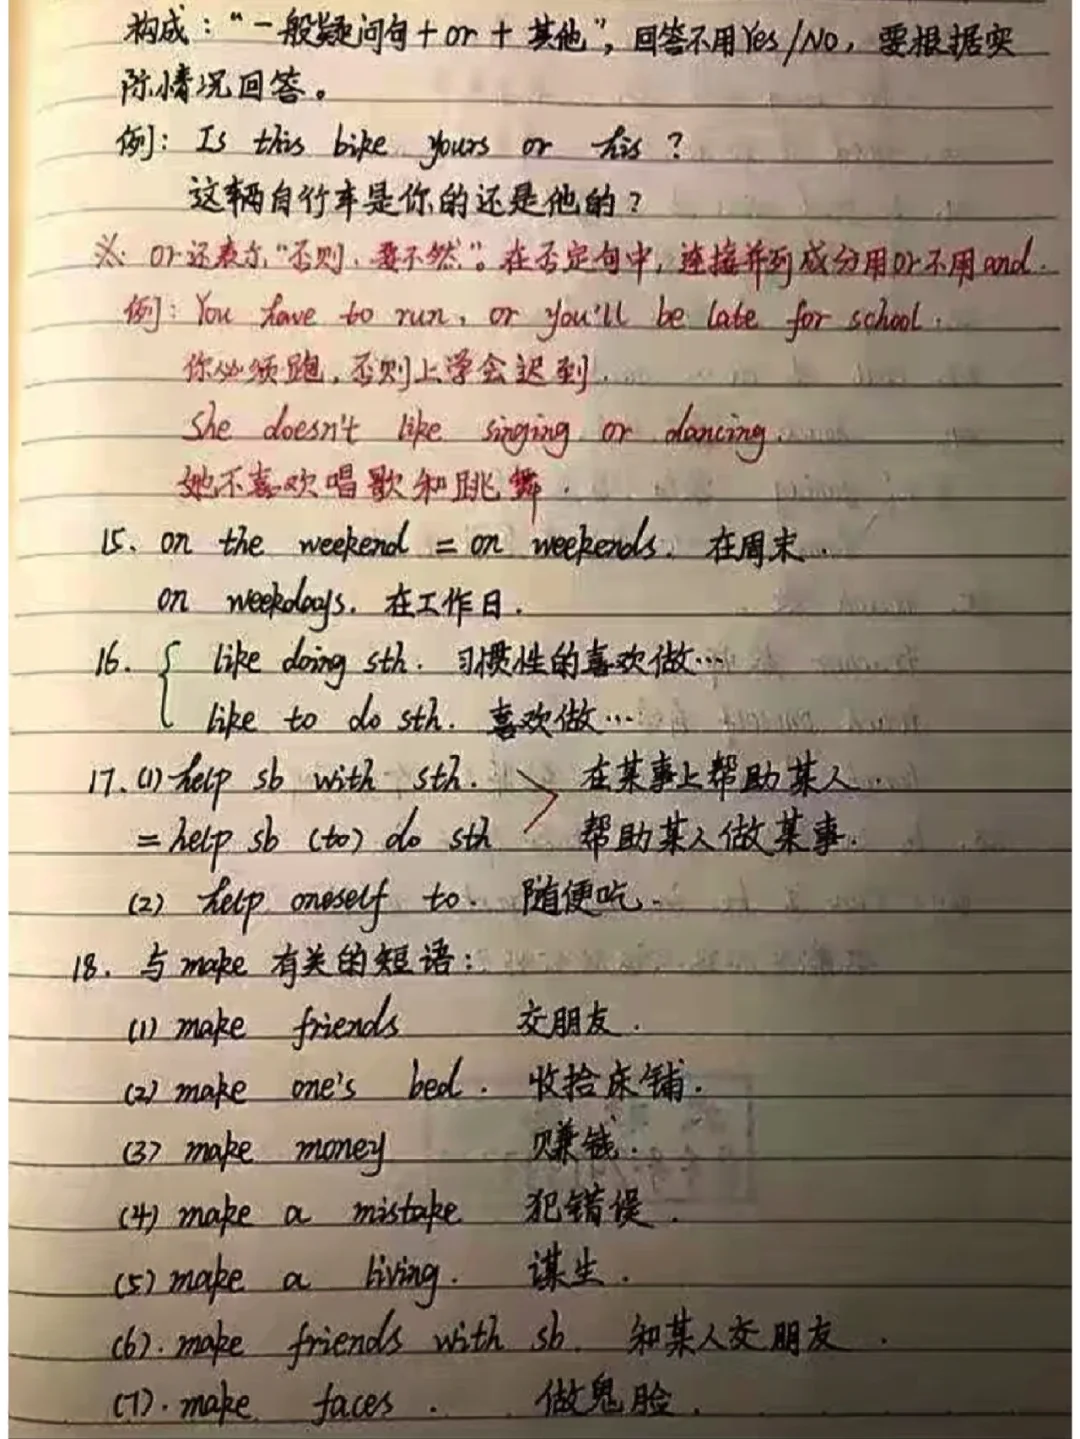 构成："一般疑问句+or+其他"，回答不用Yes/No，要根据实
际情况回答。
例：Is this bike yours or his?
这辆自行车是你的还是他的?
※ or还表示"否则，要不然"。在否定句中，连接并列成分用or不用and.
例：You have to run, or you'll be late for school.
你必须跑，否则上学会迟到.
She doesn't like singing or dancing.
她不喜欢唱歌和跳舞.
15. on the weekend = on weekends. 在周末.
on weekdays. 在工作日.
16. { like doing sth. 习惯性的喜欢做…
like to do sth. 喜欢做…
17. (1) help sb with sth. 在某事上帮助某人.
= help sb (to) do sth 帮助某人做某事.
(2) help oneself to. 随便吃.
18. 与make有关的短语：
(1) make friends 交朋友.
(2) make one's bed. 收拾床铺.
(3) make money 赚钱.
(4) make a mistake 犯错误.
(5) make a living. 谋生.
(6). make friends with sb. 和某人交朋友.
(7). make faces. 做鬼脸.